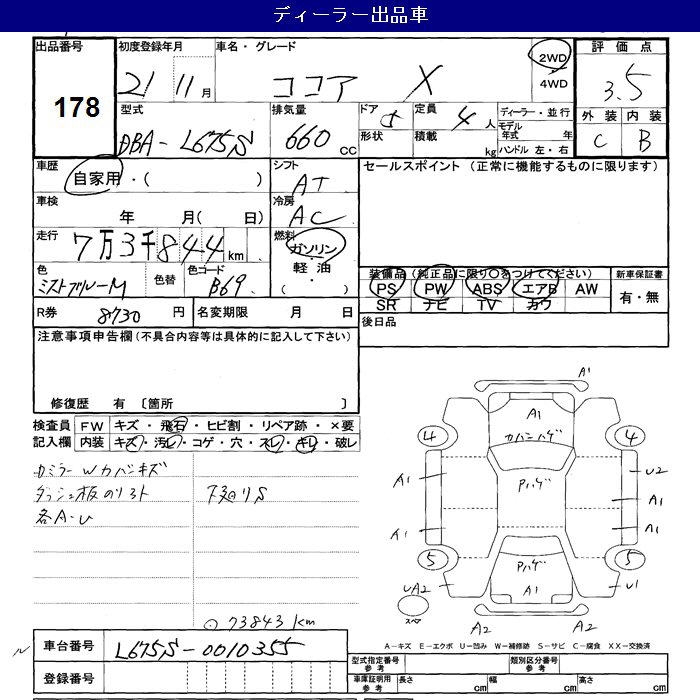 ディーラー出品車
出品番号
178
初度登録年月
21 11月
車名・グレード
ココア X
2WD
4WD
評価点
3.5
外装 内装
C B
型式
DBA-L675S
排気量
660 cc
ドア 5
形状
定員 4人
積載 kg
ディーラー・並行
モデル年式 年
ハンドル 左・右
車歴
自家用・( )
シフト
AT
セールスポイント (正常に機能するものに限ります)
車検
年 月( 日)
冷房
AC
走行
7万3千844km
燃料
ガソリン
・
軽油
・( )
色
ミストブルーM
色替
色コード
B69
装備品(純正品に限り○をつけてください)
PS PW ABS エアB AW
SR ナビ TV カワ
新車保証書
有・無
R券 8730 円
名変期限 月 日
後日品
注意事項申告欄(不具合内容等は具体的に記入して下さい)
修復歴 有 〔箇所 〕
検査員記入欄
FW キズ・飛石・ヒビ割・リペア跡・×要
内装 キズ・汚レ・コゲ・穴・スレ・キレ・破レ
各A-U
下廻りS
73843km
A1
A1
カバンハゲ
4
4
A1
Pハゲ
U2
A1
A1
A1
5
5
Pハゲ
A1
UA2
U1
スペア
A2
A2
A-キズ E-エクボ U-凹み W-補修跡 S-サビ C-腐食 XX-交換済
車台番号
L675S-0010355
登録番号
型式指定番号 参考
類別区分番号 参考
車庫証明用 参考
長さ cm
幅 cm
高さ cm